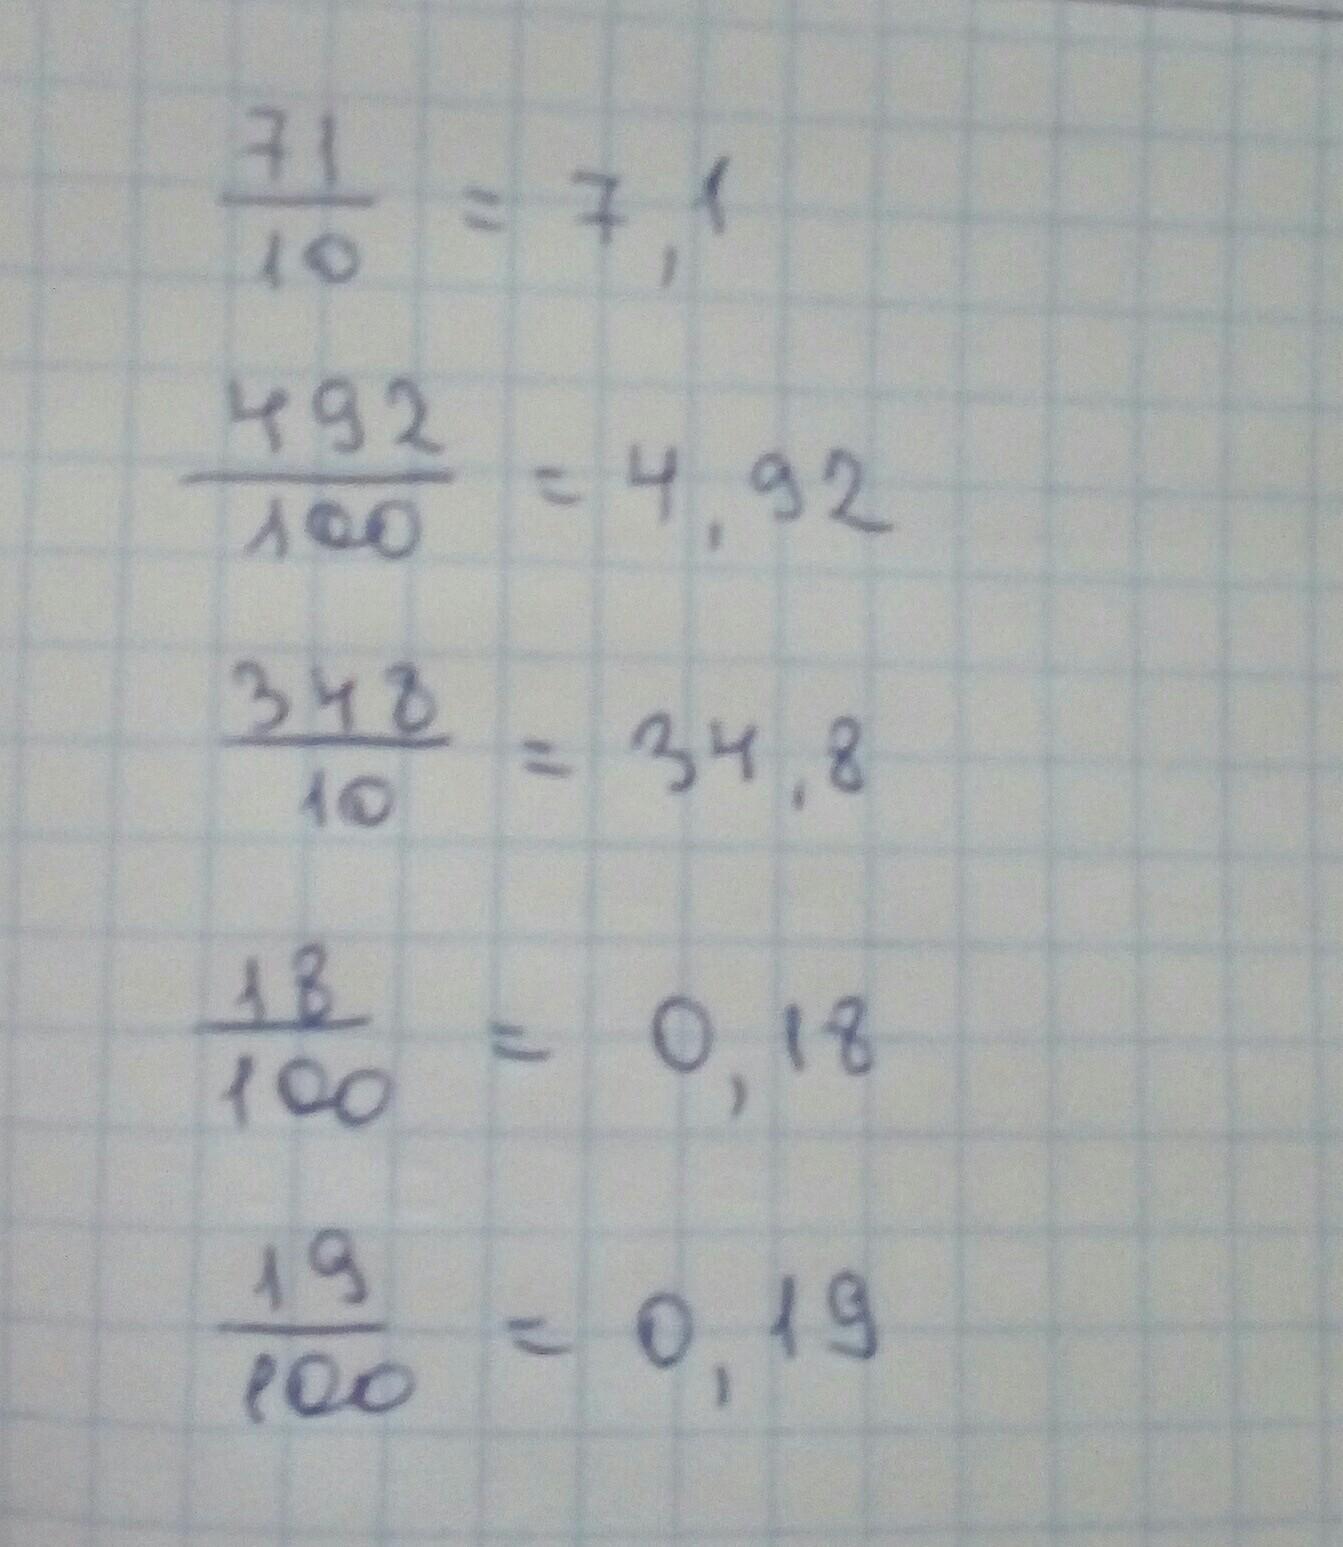 71/10 = 7,1
492/100 = 4,92
348/10 = 34,8
18/100 = 0,18
19/100 = 0,19